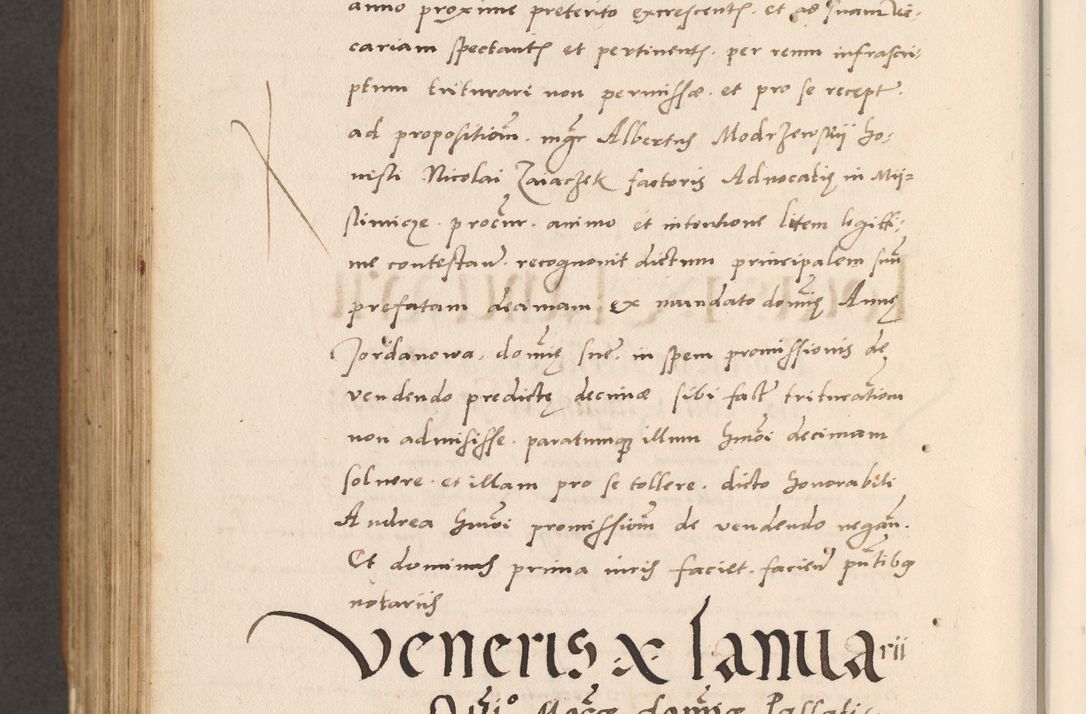 anno proxime preterito excrescent. et ad suam vi-
cariam spectant et pertinent. per reum infrascri-
ptum triturari non permisse. et pro se recept.
ad proposition. mgr Albertus Modrzewskij ho-
nesti Nicolai Zaiaczek factoris Advocatie in Mij-
slimicze. procur. animo et intentione litem legitti-
me contestan. recognovit dictum principalem suu
prefatam decimam ex mandato domie Anne
Jordanowa, domie sue. in spem promissionis de
vendendo predicte decimae sibi fact triturationem
non admisisse. paratumque illum hmoi decimam
solvere. et illam pro se tollere. dicto honorabili
Andrea hmoi promissiom de vendendo negan.
Et dominus prima iuris faciet. facien pntibus
notariis
Veneris x Ianuarii
domie Passati